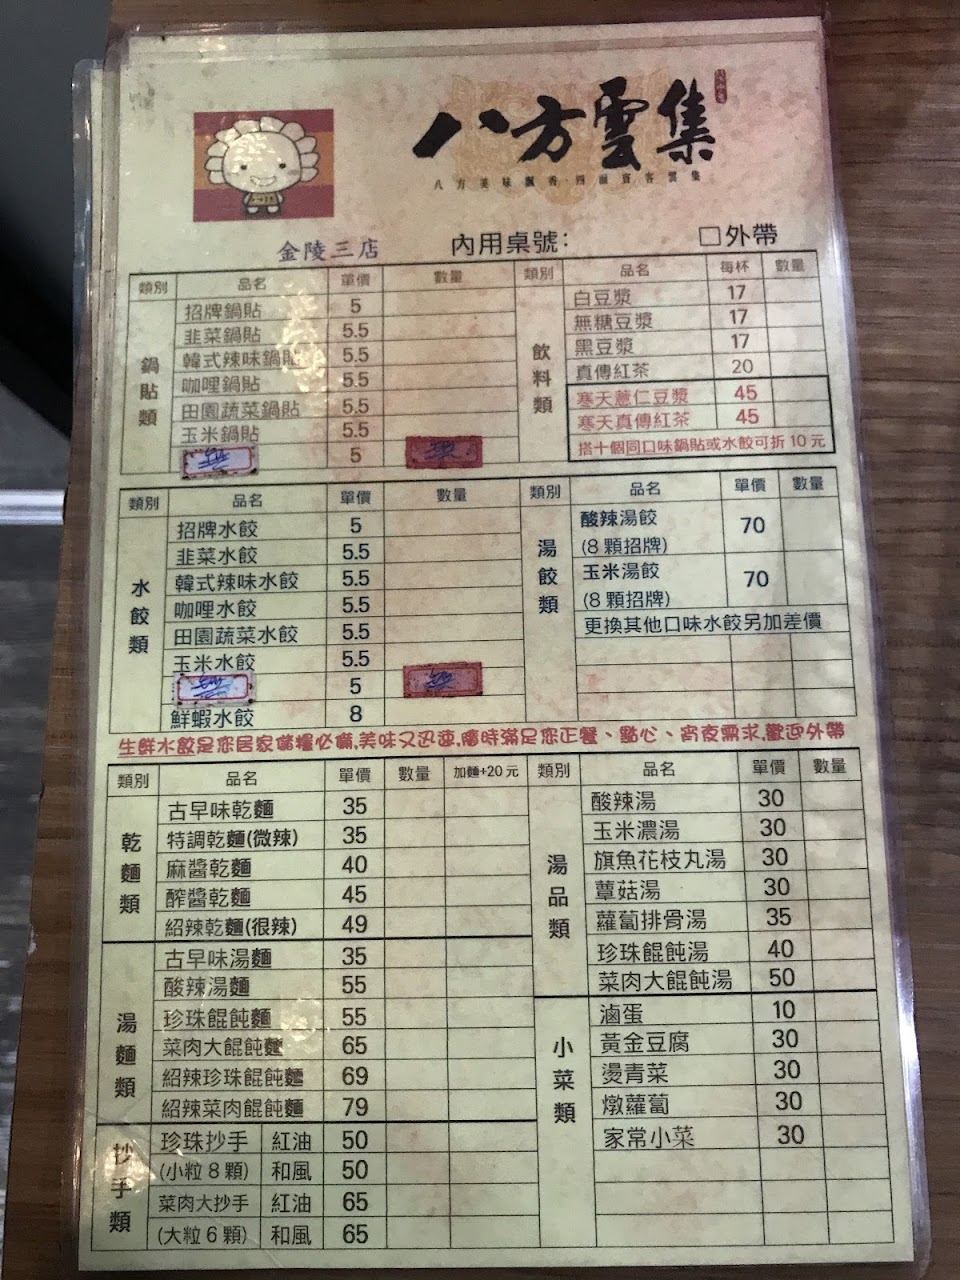 八方雲集
八方美味飄香·四面賓客雲集
金陵三店 內用桌號: □外帶
類別 品名 單價 數量
鍋貼類
招牌鍋貼 5
韭菜鍋貼 5.5
韓式辣味鍋貼 5.5
咖哩鍋貼 5.5
田園蔬菜鍋貼 5.5
玉米鍋貼 5.5
5
類別 品名 每杯 數量
飲料類
白豆漿 17
無糖豆漿 17
黑豆漿 17
真傳紅茶 20
寒天薏仁豆漿 45
寒天真傳紅茶 45
搭十個同口味鍋貼或水餃可折 10 元
類別 品名 單價 數量
水餃類
招牌水餃 5
韭菜水餃 5.5
韓式辣味水餃 5.5
咖哩水餃 5.5
田園蔬菜水餃 5.5
玉米水餃 5.5
5
鮮蝦水餃 8
類別 品名 單價 數量
湯餃類
酸辣湯餃 70
(8 顆招牌)
玉米湯餃 70
(8 顆招牌)
更換其他口味水餃另加差價
生鮮水餃是您居家儲糧必備,美味又迅速,隨時滿足您正餐、點心、宵夜需求,歡迎外帶
類別 品名 單價 數量 加麵+20 元
乾麵類
古早味乾麵 35
特調乾麵(微辣) 35
麻醬乾麵 40
醡醬乾麵 45
紹辣乾麵(很辣) 49
湯麵類
古早味湯麵 35
酸辣湯麵 55
珍珠餛飩麵 55
菜肉大餛飩麵 65
紹辣珍珠餛飩麵 69
紹辣菜肉餛飩麵 79
抄手類
珍珠抄手 紅油 50
(小粒 8 顆) 和風 50
菜肉大抄手 紅油 65
(大粒 6 顆) 和風 65
類別 品名 單價 數量
湯品類
酸辣湯 30
玉米濃湯 30
旗魚花枝丸湯 30
蕈菇湯 30
蘿蔔排骨湯 35
珍珠餛飩湯 40
菜肉大餛飩湯 50
小菜類
滷蛋 10
黃金豆腐 30
燙青菜 30
燉蘿蔔 30
家常小菜 30